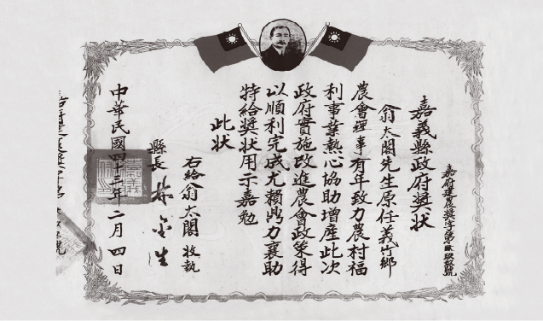 嘉義縣政府獎狀
翁太閣先生原任義竹鄉
農會理事有年致力農村福
利事業熱心協助增產此次
政府實施改進農會政策得
以順利完成尤賴鼎力襄助
特給獎狀用示嘉勉
此狀
右給翁太閣收執
縣長 林金生
中華民國四十三年二月四日